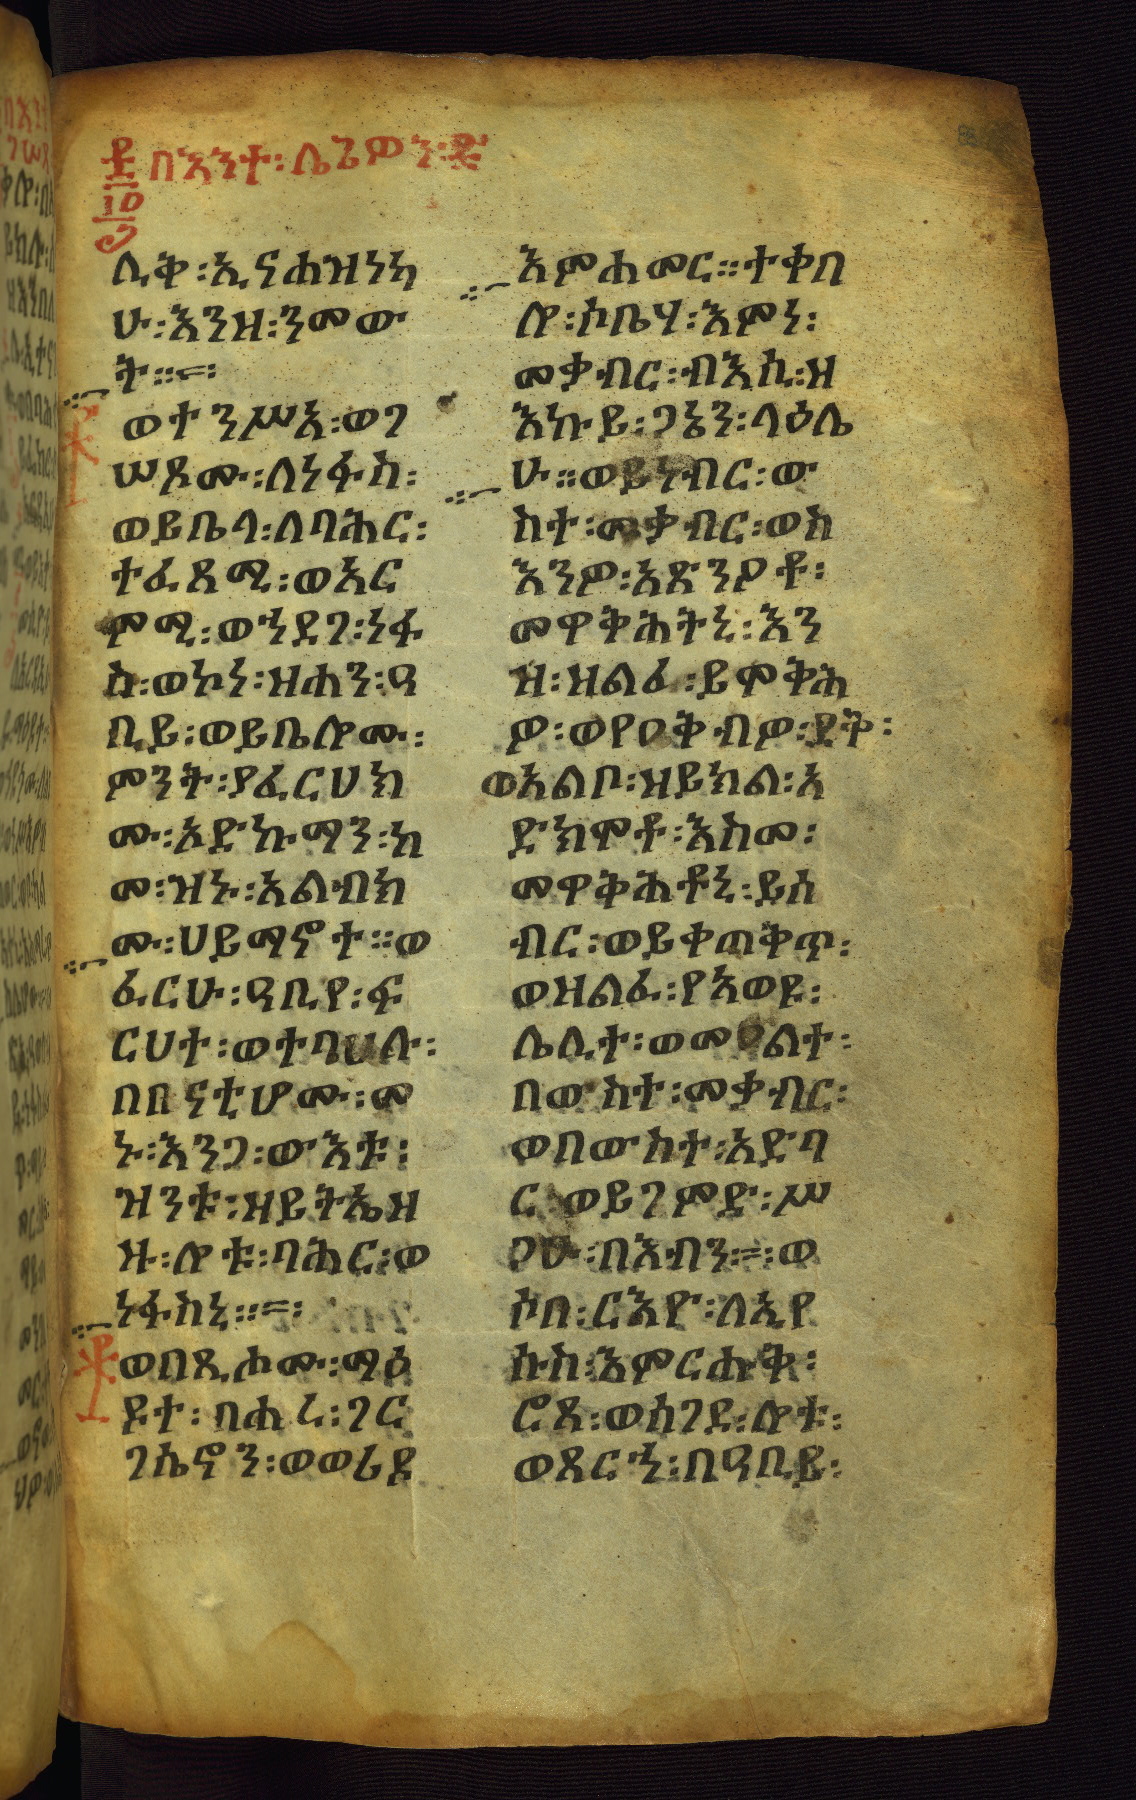 በእንተ፡ሌጌዎን፡
ሊቅ፡ኢናሐዝነከ
ሁ፡እንዘ፡ንመው
ት።
ወተንሥአ፡ወገ
ሠጾሙ፡ለነፋስ፡
ወይቤላ፡ለባሕር፡
ተፈጸሚ፡ወአር
ምሚ፡ወኀደገ፡ነፋ
ስ፡ወኮነ፡ዝሐን፡ዓ
ቢይ፡ወይቤሎሙ፡
ምንት፡ያፈርሀክ
ሙ፡አድኩማን፡ከ
መ፡ዝኑ፡አልብክ
ሙ፡ሀይማኖተ።ወ
ፈርሁ፡ዓቢየ፡ፍ
ርሀተ፡ወተባሀሉ፡
በበናቲሆሙ፡መ
ኑ፡እንጋ፡ውእቱ፡
ዝንቱ፡ዘይትኤዘ
ዙ፡ሎቱ፡ባሕር፡ወ
ነፋስኒ።
ወበጺሖሙ፡ማዕ
ዶተ፡በሐረ፡ጌር
ጌሴኖን፡ወወሪዶ
እምሐመር።ተቀበ
ሎ፡ሶቤሃ፡እምነ፡
መቃብር፡ብእሲ፡ዘ
እኩይ፡ጋኔን፡ላዕሌ
ሁ።ወይነብር፡ው
ስተ፡መቃብር፡ወሰ
እንዎ፡አጽንዖቶ፡
መዋቅሕትኒ፡እን
ዘ፡ዘልፈ፡ይሞቅሕ
ዎ፡ወየዐቅብዎ፡ደቅ፡
ወአልቦ፡ዝይክል፡አ
ድክሞቶ፡እስመ፡
መዋቅሕቶኒ፡ይሰ
ብር፡ወይቀጠቅጥ፡
ወዘልፈ፡የአወዪ፡
ሌሊተ፡ወመዐልተ፡
በውስተ፡መቃብር፡
ወበውስተ፡አድባ
ር፡ወይገምድ፡ሥ
ጋሁ፡በእብን፡ወ
ሶበ፡ርእዮ፡ለኢየ
ሱስ፡እምርሑቅ፡
ሮጸ፡ወሰገደ፡ሎቱ፡
ወጸርኀ፡በዓቢይ፡